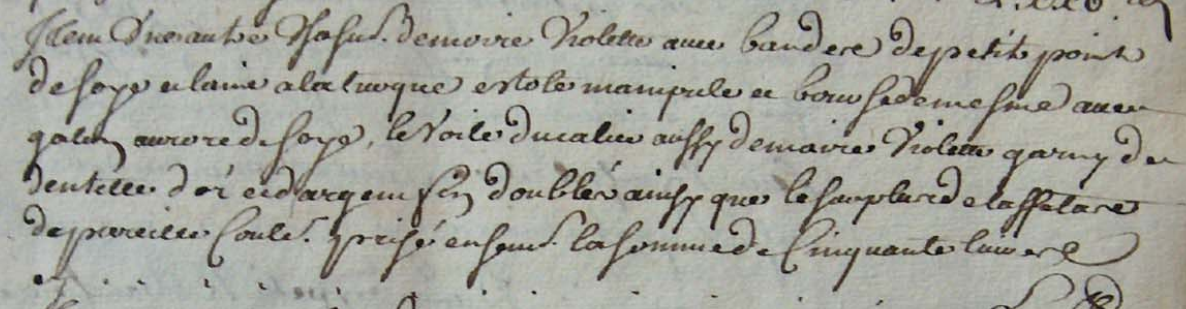 Item Une autre Chasu.e de moire Violette avec bandes de petit point
de soye et laine a la turque estole manipule et bourse de mesme avec
galon aurore de soye, le Voile du calice aussy de moire Violette garny de
dentelle d'or et d'argent fin doublé ainsy que le surplus de taffetas
de pareille Coul.r prisé ensem.e la somme de Cinquante livres